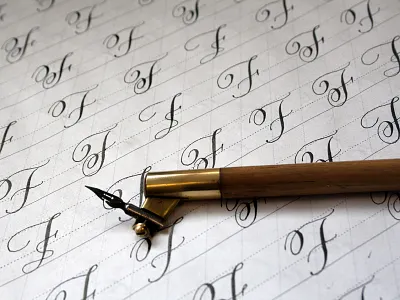 F
F F
F F F
F F F F F
F F F F F F
F F F F F F
F F F F F
F F F
F